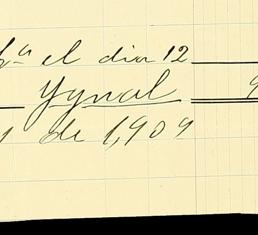 fª el dia 12
Ygual
de 1,909